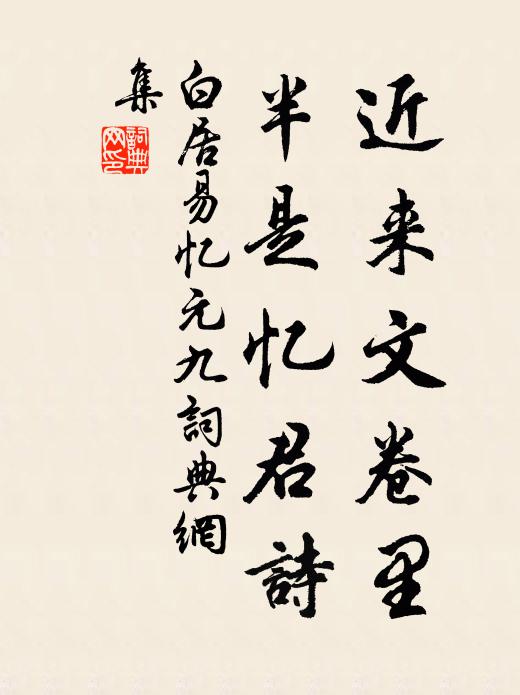 近来文卷里
半是忆君诗
白居易忆元九詞典網
集
詞典網印